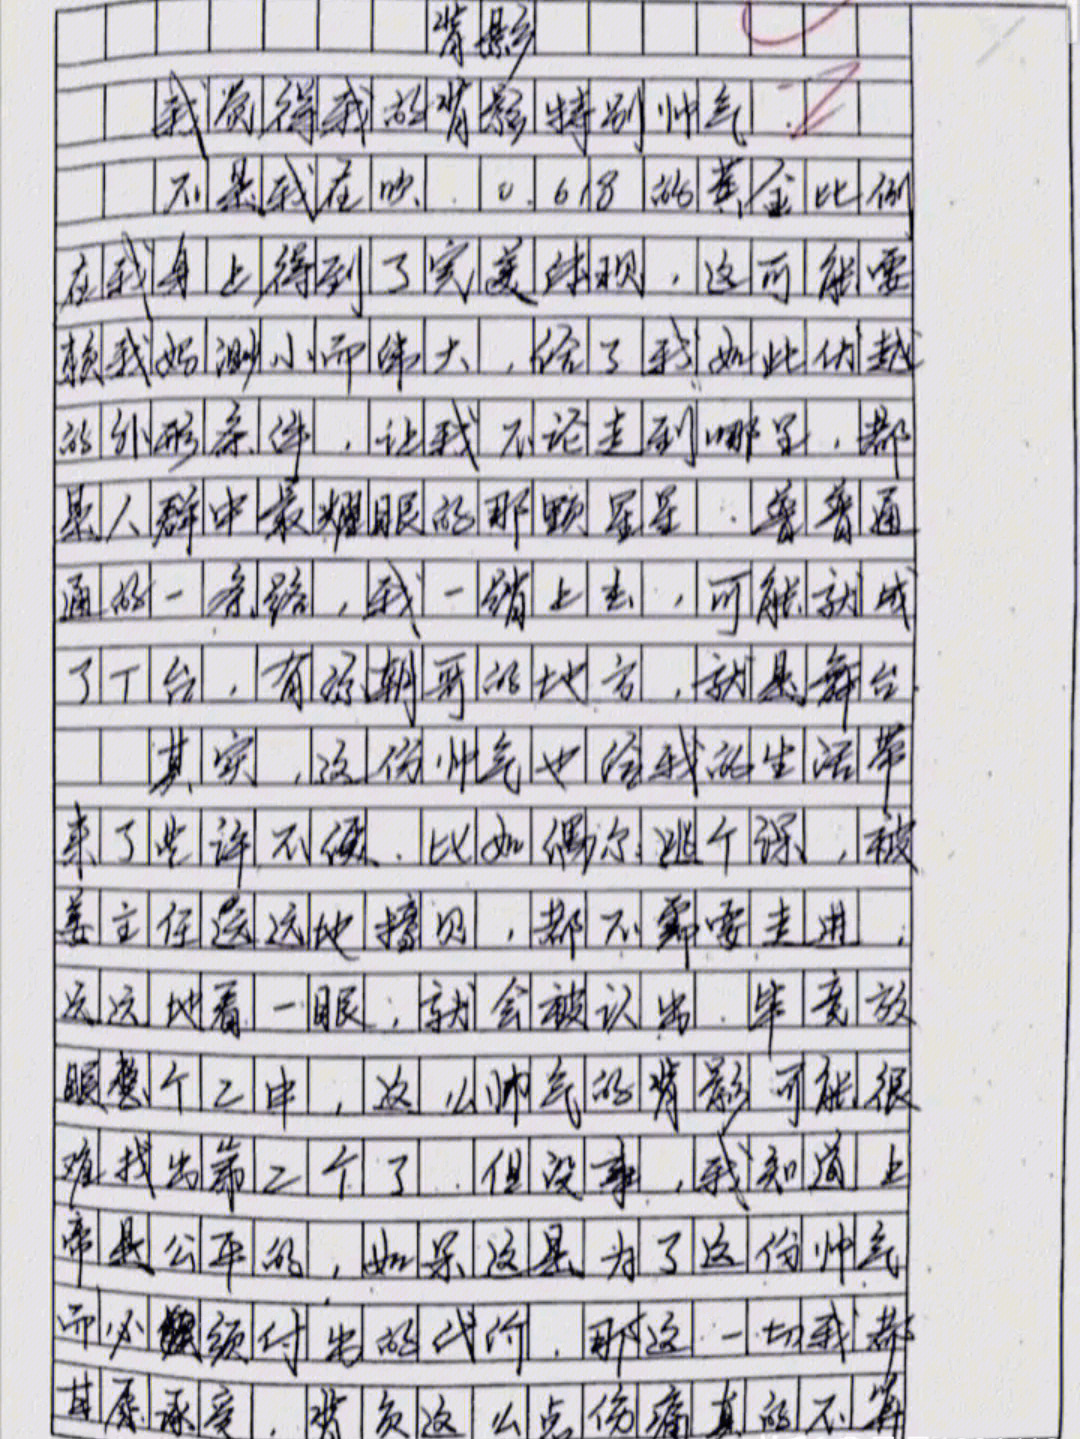 背影
我觉得我的背影特别帅气.
不是我在吹.0.618的黄金比例
在我身上得到了完美体现,这可能要
赖我妈渺小而伟大,给了我如此优越
的外形条件,让我不论走到哪里,都
是人群中最耀眼的那颗星星.普普通
通的一条路,我一踏上去,可能就成
了T台,有源朝哥的地方,就是舞台.
其实,这份帅气也给我的生活带
来了些许不便.比如偶尔逃个课,被
姜主任远远地撞见,都不需要走进,
远远地看一眼,就会被认出.毕竟放
眼整个二中,这么帅气的背影可能很
难找出第二个了.但没事,我知道上
帝是公平的,如果这是为了这份帅气
而必须付出的代价.那这一切我都
甘愿承受.背负这么点伤痛真的不算